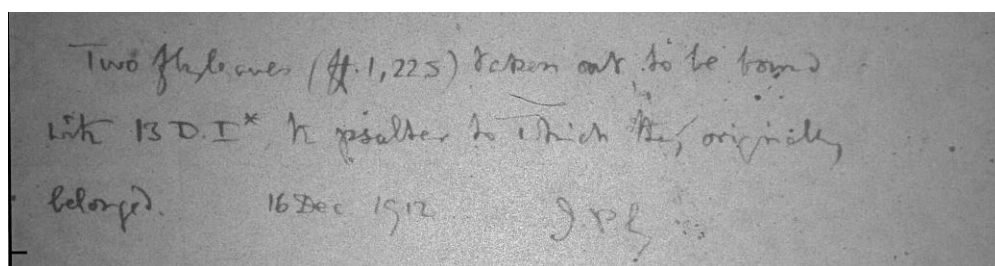 Two flyleaves (ff. 1, 225) taken out to be bound
with 13 D. I* the psalter to which they originally
belonged. 16 Dec. 1912 J.P.G.